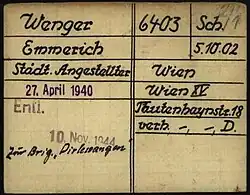 Wenger 6403 Sch.
Emmerich 5.10.02
Städt. Angestellter Wien
27. April 1940 Wien XV
Entl. Tautenhaynstr. 18
10. Nov. 1944 verh. -, -, D.
Zur Brig. „Dirlewanger"